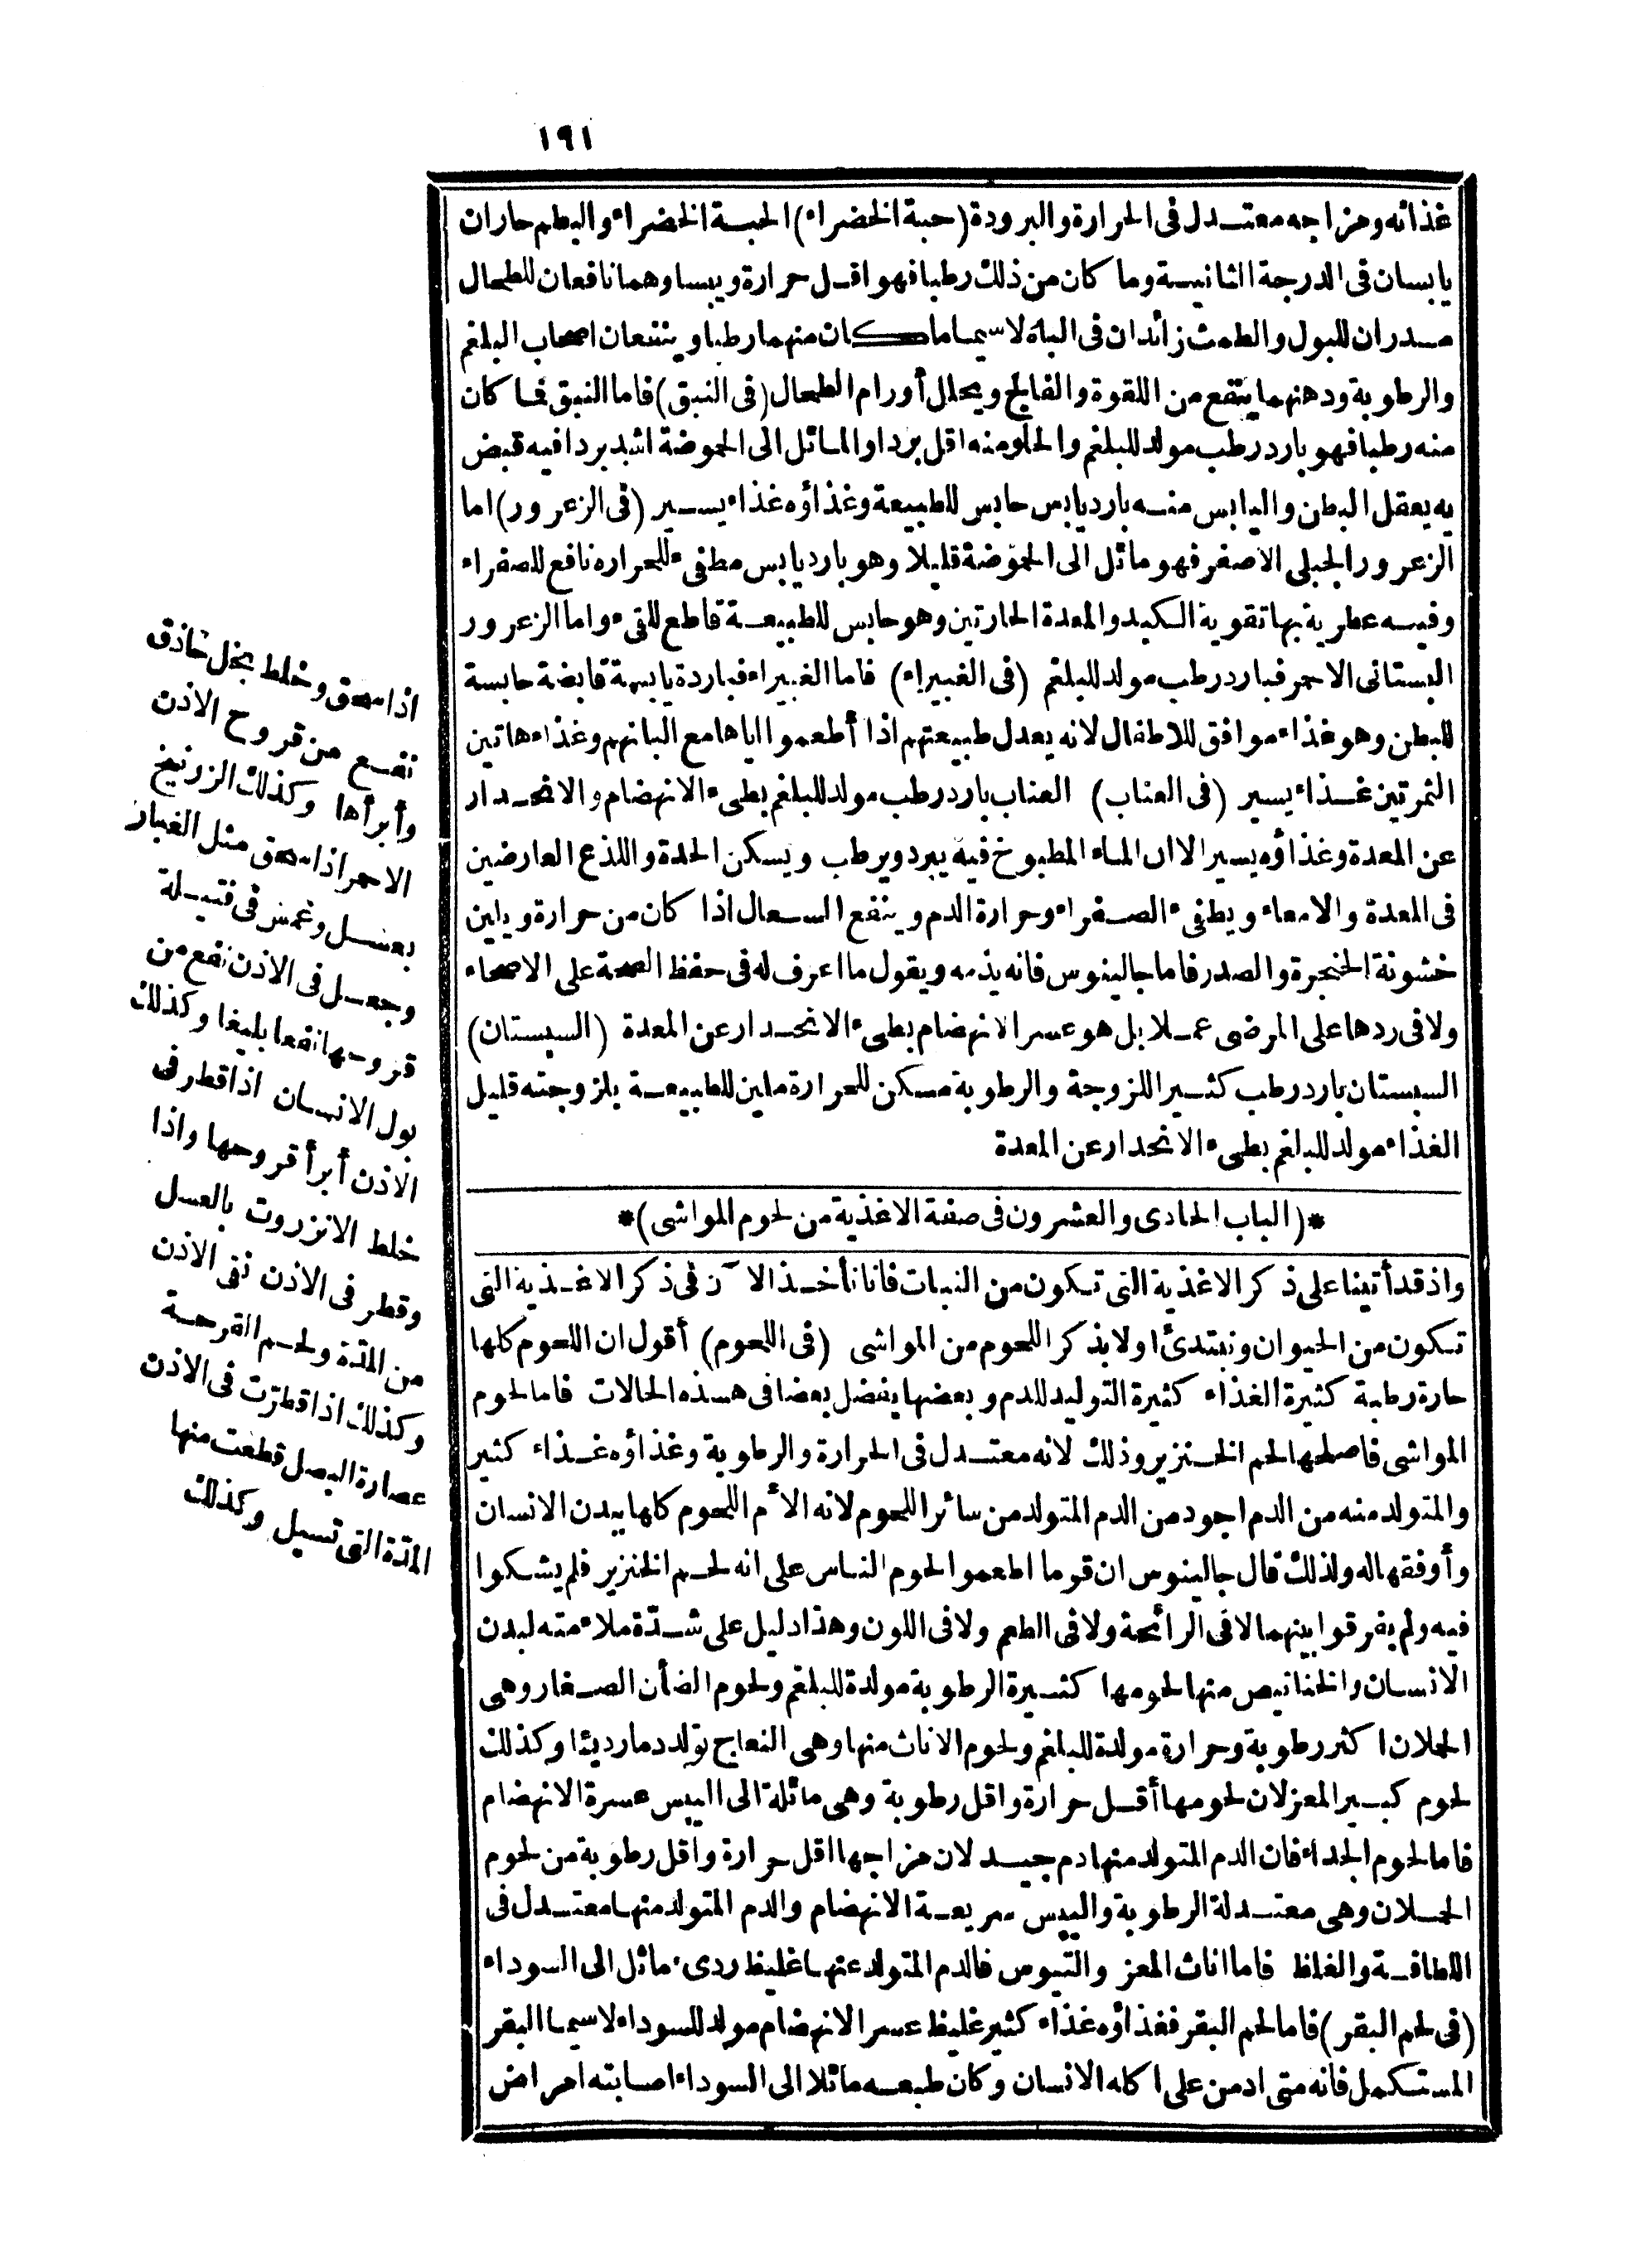 ١٩١
غذائه ومزاجه معتدل فى الحرارة والبرودة (حبة الخضراء) الحبة الخضراء والبطم حاران
يابسان فى الدرجة الثانية وما كان من ذلك رطبا فهو اقل حرارة ويبسا وهما نافعان للطحال
مدران للبول والطمث زائدان فى الباه لاسيما ما كان منهما رطبا وينفعان اصحاب البلغم
والرطوبة ودهنهما ينفع من اللقوة والفالج ويحلل أورام الطحال (فى النبق) فاما النبق فما كان
منه رطبا فهو بارد رطب مولد للبلغم والحلو منه اقل بردا والمائل الى الحموضة اشد بردا فيه قبض
به يعقل البطن واليابس منه بارد يابس حابس للطبيعة وغذاؤه غذاء يسير (فى الزعرور) اما
الزعرور الجبلى الاصفر فهو مائل الى الحموضة قليلا وهو بارد يابس مطفىء للحراره نافع للصفراء
وفيه عطرية بها تقوية الكبد والمعدة الحارتين وهو حابس للطبيعة قاطع للقىء واما الزعرور
البستانى الاحمر فبارد رطب مولد للبلغم (فى الغبيراء) فاما الغبيراء فباردة يابسة قابضة حابسة
للبطن وهو غذاء موافق للاطفال لانه يعدل طبيعتهم اذا أطعموا اياها مع البانهم وغذاء هاتين
الثمرتين غذاء يسير (فى العناب) العناب بارد رطب مولد للبلغم بطىء الانهضام والانحدار
عن المعدة وغذاؤه يسير الا ان الماء المطبوخ فيه يبرد ويرطب ويسكن الحدة واللذع العارضين
فى المعدة والامعاء ويطفىء الصفراء وحرارة الدم وينفع السعال اذا كان من حرارة ويلين
خشونة الحنجرة والصدر فاما جالينوس فانه يذمه ويقول ما اعرف له فى حفظ الصحة على الاصحاء
ولا فى ردها على المرضى عملا بل هو عسر الانهضام بطىء الانحدار عن المعدة (السبستان)
السبستان بارد رطب كثير اللزوجة والرطوبة مسكن للحرارة ملين للطبيعة بلزوجته قليل
الغذاء مولد للبلغم بطىء الانحدار عن المعدة
*(الباب الحادى والعشرون فى صفة الاغذية من لحوم المواشى)*
واذ قد أتينا على ذكر الاغذية التى تكون من النبات فانا نأخذ الآن فى ذكر الاغذية التى
تكون من الحيوان ونبتدئ اولا بذكر اللحوم من المواشى (فى اللحوم) أقول ان اللحوم كلها
حارة رطبة كثيرة الغذاء كثيرة التوليد للدم وبعضها يفضل بعضا فى هذه الحالات فاما لحوم
المواشى فاصلحها لحم الخنزير وذلك لانه معتدل فى الحرارة والرطوبة وغذاؤه غذاء كثير
والمتولد منه من الدم اجود من الدم المتولد من سائر اللحوم لانه الأم اللحوم كلها ببدن الانسان
وأوفقها له ولذلك قال جالينوس ان قوما اطعموا لحوم الناس على انه لحم الخنزير فلم يشكوا
فيه ولم يفرقوا بينهما لا فى الرائحة ولا فى الطعم ولا فى اللون وهذا دليل على شدّة ملاءمته لبدن
الانسان والخنانيص منها لحومها كثيرة الرطوبة مولدة للبلغم ولحوم الضأن الصغار وهى
الحملان اكثر رطوبة وحرارة مولدة للبلغم ولحوم الاناث منها وهى النعاج تولد دما رديئا وكذلك
لحوم كبير المعز لان لحومها أقل حرارة واقل رطوبة وهى مائلة الى اليبس عسرة الانهضام
فاما لحوم الجداء فان الدم المتولد منها دم جيد لان مزاجها اقل حرارة واقل رطوبة من لحوم
الحملان وهى معتدلة الرطوبة واليبس سريعة الانهضام والدم المتولد منها معتدل فى
اللطافة والغلظ فاما اناث المعز والتيوس فالدم المتولد عنها غليظ ردىء مائل الى السوداء
(فى لحم البقر) فاما لحم البقر فغذاؤه غذاء كثير غليظ عسر الانهضام مولد للسوداء لاسيما البقر
المستكمل فانه متى ادمن على اكله الانسان وكان طبعه مائلا الى السوداء اصابته امراض
اذا سحق وخلط بخل حاذق
نفع من قروح الاذن
وأبرأها وكذلك الزرنيخ
الاحمر اذا سحق مثل الغبار
بعسل وغمس فى فتيلة
وجعل فى الاذن نفع من
قروحها نفعا بليغا وكذلك
بول الانسان اذا قطر فى
الاذن أبرأ قروحها واذا
خلط الانزروت بالعسل
وقطر فى الاذن نقى الاذن
من المدّة ولحم القرحة
وكذلك اذا قطرّت فى الاذن
عصارة البصل قطعت منها
المدّة التى تسيل وكذلك